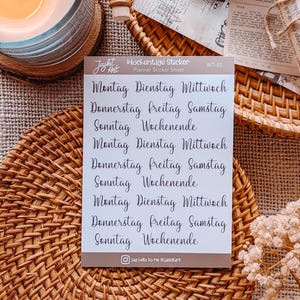 Wochentage Sticker
Planner Sticker Sheet
WT-01
Montag Dienstag Mittwoch
Donnerstag Freitag Samstag
Sonntag Wochenende
Montag Dienstag Mittwoch
Donnerstag Freitag Samstag
Sonntag Wochenende
Montag Dienstag Mittwoch
Donnerstag Freitag Samstag
Sonntag Wochenende